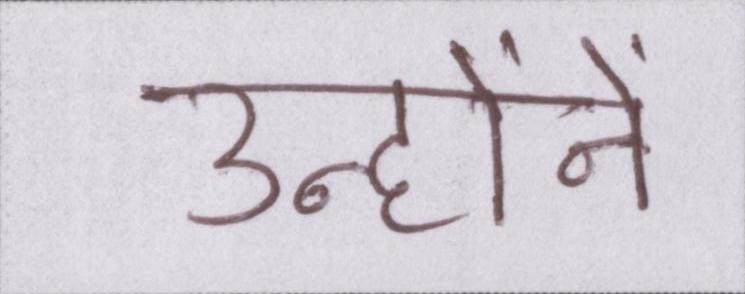 उन्होंनें